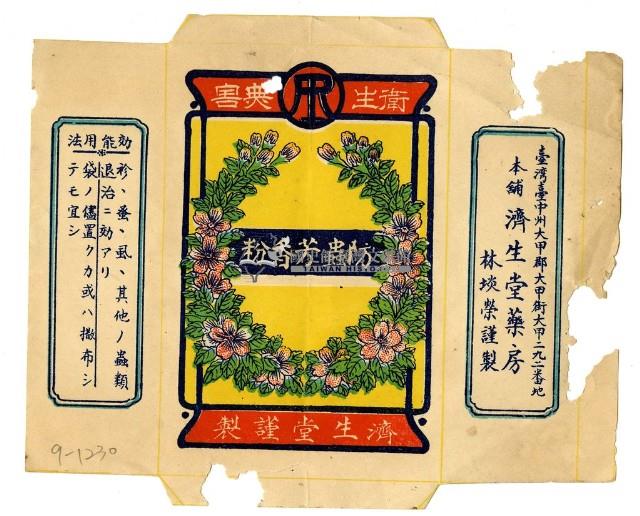 衛生無害
防蟲芳香粉
TAIWAN HIS
濟生堂謹製
臺湾臺中州大甲郡大甲街大甲二九二番地
本舖 濟生堂藥房
林埮榮謹製
効能用法
蚤、虱、其他ノ蟲類
退治ニ効アリ
袋ノ儘置クカ或ハ撒布シ
テモ宜シ
9-1230